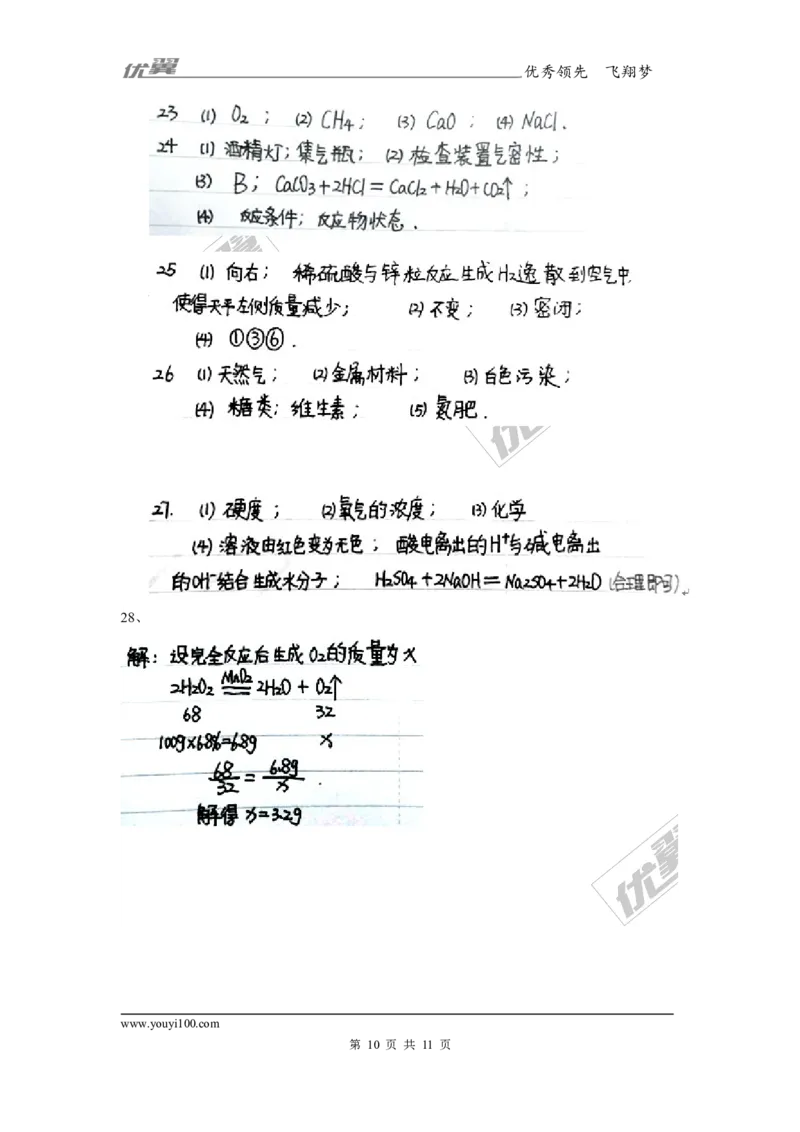 优翼
优秀领先 飞翔梦
23 (1) O₂ ; (2) CH₄ ; (3) CaO ; (4) NaCl.
24 (1) 酒精灯; 集气瓶; (2) 检查装置气密性;
(3) B; CaCO₃+2HCl=CaCl₂+H₂O+CO₂↑ ;
(4) 反应条件; 反应物状态.
25 (1) 向右; 稀硫酸与锌粒反应生成H₂逸散到空气中,
使得天平左侧质量减少; (2) 不变; (3) 密闭;
(4) ①③⑥.
26 (1) 天然气; (2) 金属材料; (3) 白色污染;
(4) 糖类; 维生素; (5) 氮肥.
优
27. (1) 硬度; (2) 氧气的浓度; (3) 化学
(4) 溶液由红色变为无色; 酸电离出的H⁺与碱电离出
的OH⁻结合生成水分子; H₂SO₄+2NaOH=Na₂SO₄+2H₂O (合理即可)
28、
解: 设完全反应后生成O₂的质量为x
MnO₂
2H₂O₂ == 2H₂O + O₂↑
68 32
100g×6.8%=6.8g x
68/32 = 6.8g/x .
解得 x=3.2g
优翼
www.youyi100.com
第 10 页 共 11 页